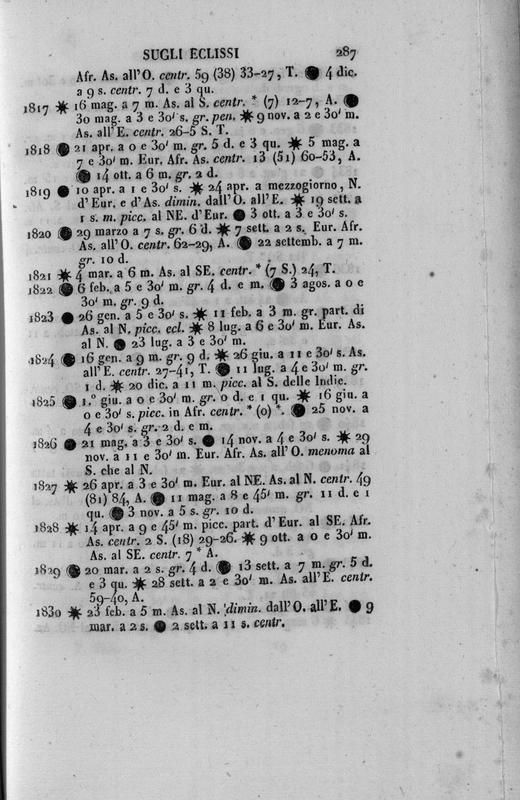 SUGLI ECLISSI 287
Afr. As. all'O. centr. 59 (38) 33-27, T. 4 dic.
a 9 s. centr. 7 d. e 3 qu.
1817 16 mag. a 7 m. As. al S. centr. * (7) 12-7, A.
30 mag. a 3 e 30' s. gr. pen. 9 nov. a 2 e 30' m.
As. all'E. centr. 26-5 S. T.
1818 21 apr. a 0 e 30' m. gr. 5 d. e 3 qu. 5 mag. a
7 e 30' m. Eur. Afr. As. centr. 13 (51) 60-53, A.
14 ott. a 6 m. gr. 2 d.
1819 10 apr. a 1 e 30' s. 24 apr. a mezzogiorno, N.
d'Eur. e d'As. dimin. dall'O. all'E. 19 sett. a
1 s. m. picc. al NE. d'Eur. 3 ott. a 3 e 30' s.
1820 29 marzo a 7 s. gr. 6 d. 7 sett. a 2 s. Eur. Afr.
As. all'O. centr. 62-29, A. 22 settemb. a 7 m.
gr. 10 d.
1821 4 mar. a 6 m. As. al SE. centr. * (7 S.) 24, T.
1822 6 feb. a 5 e 30' m. gr. 4 d. e m. 3 agos. a 0 e
30' m. gr. 9 d.
1823 26 gen. a 5 e 30' s. 11 feb. a 3 m. gr. part. di
As. al N. picc. ecl. 8 lug. a 6 e 30' m. Eur. As.
al N. 23 lug. a 3 e 30' m.
1824 16 gen. a 9 m. gr. 9 d. 26 giu. a 11 e 30' s. As.
all'E. centr. 27-41, T. 11 lug. a 4 e 30' m. gr.
1 d. 20 dic. a 11 m. picc. al S. delle Indie.
1825 1.° giu. a 0 e 30' m. gr. 0 d. e 1 qu. 16 giu. a
0 e 30' s. picc. in Afr. centr. * (0) *. 25 nov. a
4 e 30' s. gr. 2 d. e m.
1826 21 mag. a 3 e 30' s. 14 nov. a 4 e 30' s. 29
nov. a 11 e 30' m. Eur. Afr. As. all'O. menoma al
S. che al N.
1827 26 apr. a 3 e 30' m. Eur. al NE. As. al N. centr. 49
(81) 84, A. 11 mag. a 8 e 45' m. gr. 11 d. e 1
qu. 3 nov. a 5 s. gr. 10 d.
1828 14 apr. a 9 e 45' m. picc. part. d'Eur. al SE. Afr.
As. centr. 2 S. (18) 29-26. 9 ott. a 0 e 30' m.
As. al SE. centr. 7 * A.
1829 20 mar. a 2 s. gr. 4 d. 13 sett. a 7 m. gr. 5 d.
e 3 qu. 28 sett. a 2 e 30' m. As. all'E. centr.
59-40, A.
1830 23 feb. a 5 m. As. al N. dimin. dall'O. all'E. 9
mar. a 2 s. 2 sett. a 11 s. centr.